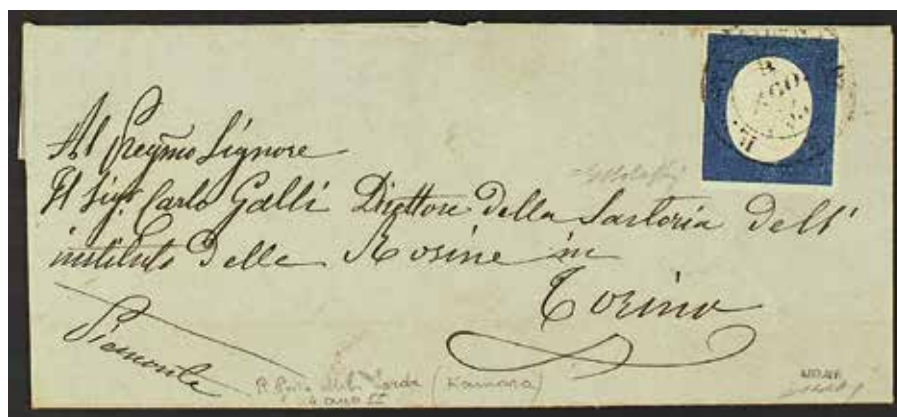 Al Pregmo Signore
Il Sigr. Carlo Galli Direttore della Sartoria dell'
instituto delle Rosine in
Torino
Piemonte
AGO
R. Posta Milit. Sarda (Kamara)